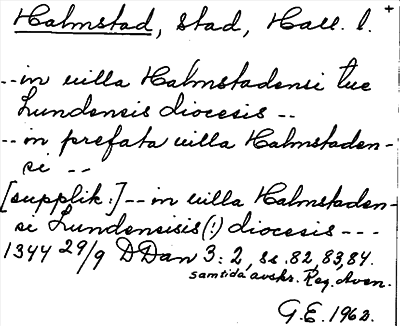 Halmstad, stad, Hall. l. +
-- in uilla Halmstadensi tue
Lundensis diocesis --
-- in prefata uilla Halmstaden-
si --
[supplik:] -- in uilla Halmstaden-
se Lundensisis (!) diocesis ---
1344 29/9 DDan 3: 2, ss. 82, 83, 84.
samtida avskr. Reg. Aven.
G.E. 1962.